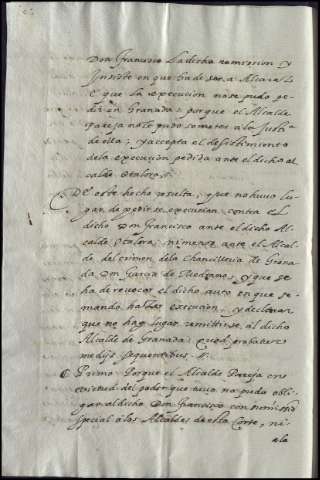 Don Francisco la dicha remission, y
insiste en que ha de ser a Alcala
que la execucion no se pudo pe-
dir en Granada: porque el Alcalde
Pareja no le pudo someter a la Justiª
de ella: y accepta el desistimiento
dela execucion pedida ante el dicho al
calde Otalora.
De este hecho resulta, que no huuo lu-
gar de pedirse execucion contra el
dicho Don Francisco ante el dicho Al-
calde Otalora, ni menos ante el Alcal-
de del crimen dela Chancilleria de Grana-
da Don Garcia de Medrano, y que se
ha de reuocar el dicho auto en que se
mando hacer execucion, y declarar
que no hay lugar remitirse al dicho
Alcalde de Granada: quod probatur
medijs sequentibus.
Primo. Porque el Alcalde Pareja en
virtud del poder que tuuo no pudo obli-
gar al dicho Don Francisco con sumission
special a los Alcaldes de esta Corte, ni
ala